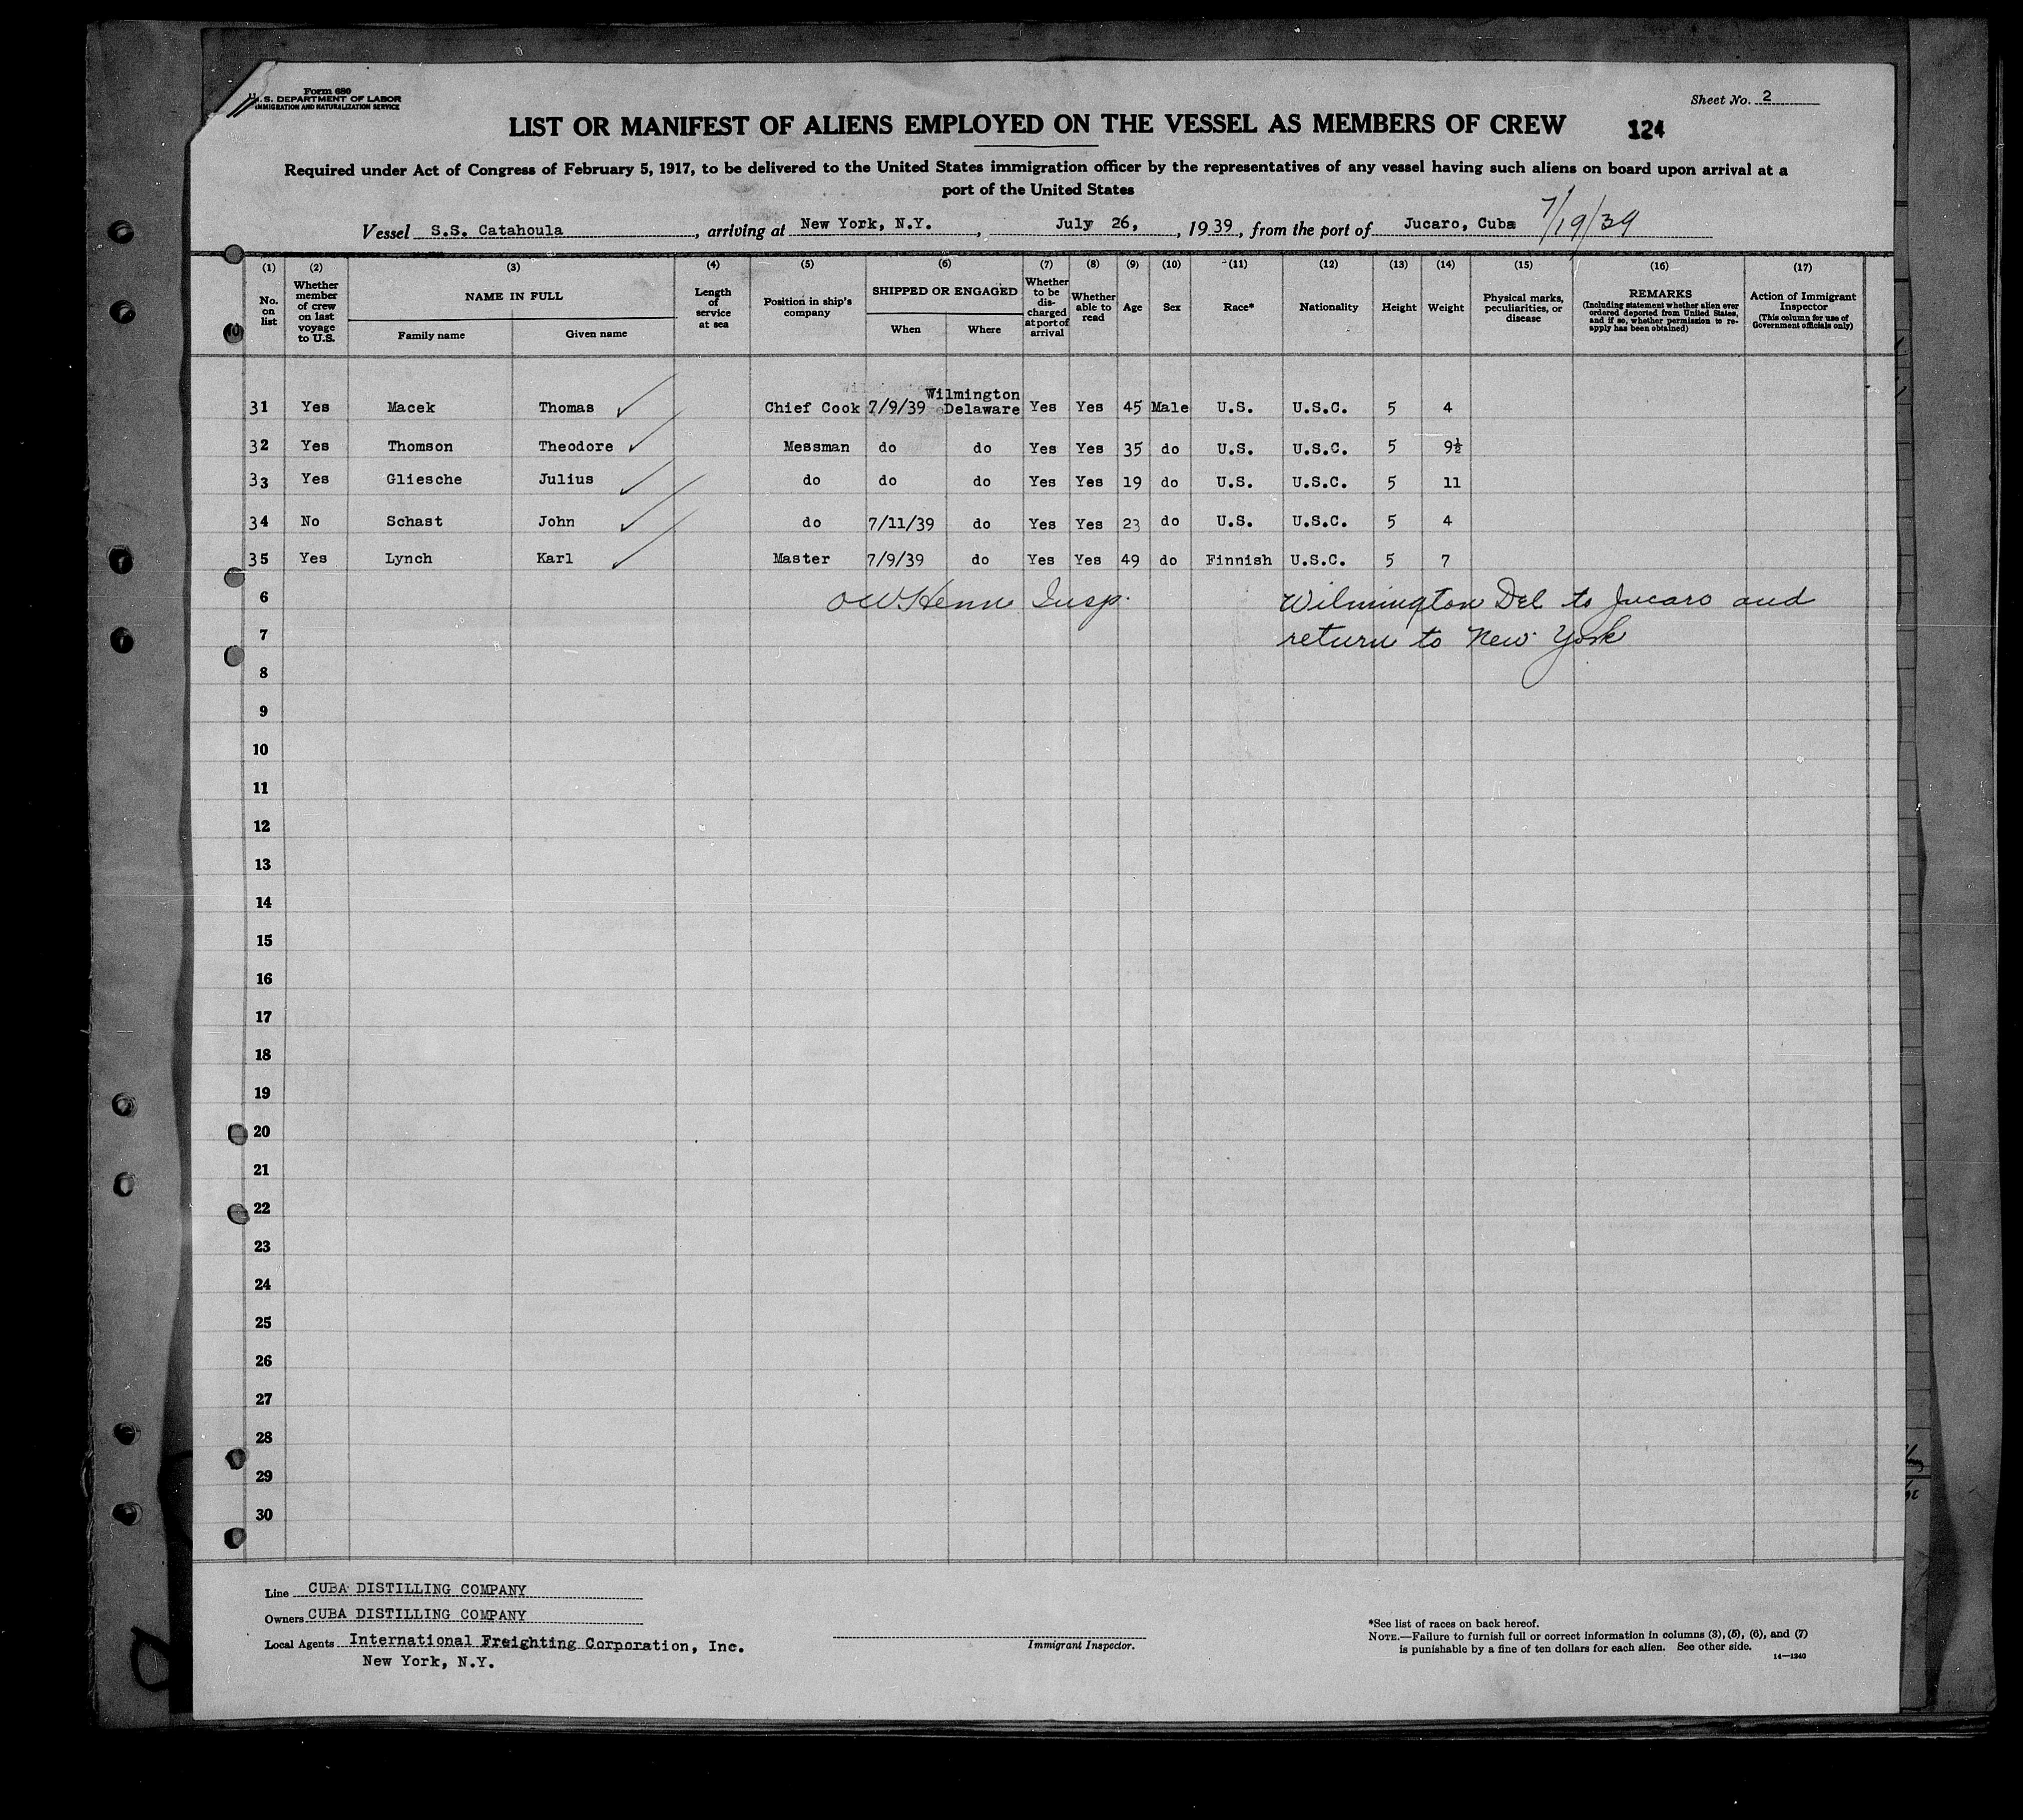 Form 680
U.S. DEPARTMENT OF LABOR
IMMIGRATION AND NATURALIZATION SERVICE
Sheet No. 2
LIST OR MANIFEST OF ALIENS EMPLOYED ON THE VESSEL AS MEMBERS OF CREW 124
Required under Act of Congress of February 5, 1917, to be delivered to the United States immigration officer by the representatives of any vessel having such aliens on board upon arrival at a
port of the United States
Vessel S.S. Catahoula, arriving at New York, N.Y., July 26, 1939, from the port of Jucaro, Cuba 7/19/39
(1) No. on list
(2) Whether member of crew on last voyage to U.S.
(3) NAME IN FULL Family name Given name
(4) Length of service at sea
(5) Position in ship's company
(6) SHIPPED OR ENGAGED When Where
(7) Whether to be discharged at port of arrival
(8) Whether able to read
(9) Age
(10) Sex
(11) Race*
(12) Nationality
(13) Height
(14) Weight
(15) Physical marks, peculiarities, or disease
(16) REMARKS (Including statement whether alien ever ordered deported from United States, and if so, whether permission to reapply has been obtained)
(17) Action of Immigrant Inspector (This column for use of Government officials only)
31 Yes Macek Thomas Chief Cook 7/9/39 Wilmington Delaware Yes Yes 45 Male U.S. U.S.C. 5 4
32 Yes Thomson Theodore Messman do do Yes Yes 35 do U.S. U.S.C. 5 9½
33 Yes Gliesche Julius do do do Yes Yes 19 do U.S. U.S.C. 5 11
34 No Schast John do 7/11/39 do Yes Yes 23 do U.S. U.S.C. 5 4
35 Yes Lynch Karl Master 7/9/39 do Yes Yes 49 do Finnish U.S.C. 5 7
6 Insp. Wilmington Del to Jucaro and
7 return to New York
8
9
10
11
12
13
14
15
16
17
18
19
20
21
22
23
24
25
26
27
28
29
30
Line CUBA DISTILLING COMPANY
Owners CUBA DISTILLING COMPANY
Local Agents International Freighting Corporation, Inc.
New York, N.Y.
Immigrant Inspector.
*See list of races on back hereof.
NOTE.—Failure to furnish full or correct information in columns (3), (5), (6), and (7)
is punishable by a fine of ten dollars for each alien. See other side.
14—1240